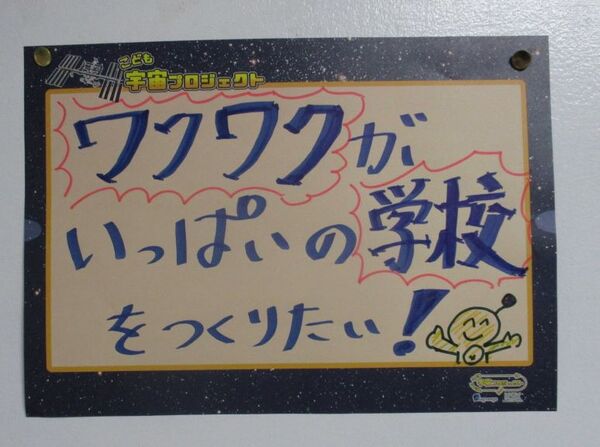 こども
宇宙プロジェクト
ワクワクが
いっぱいの学校
をつくりたい!